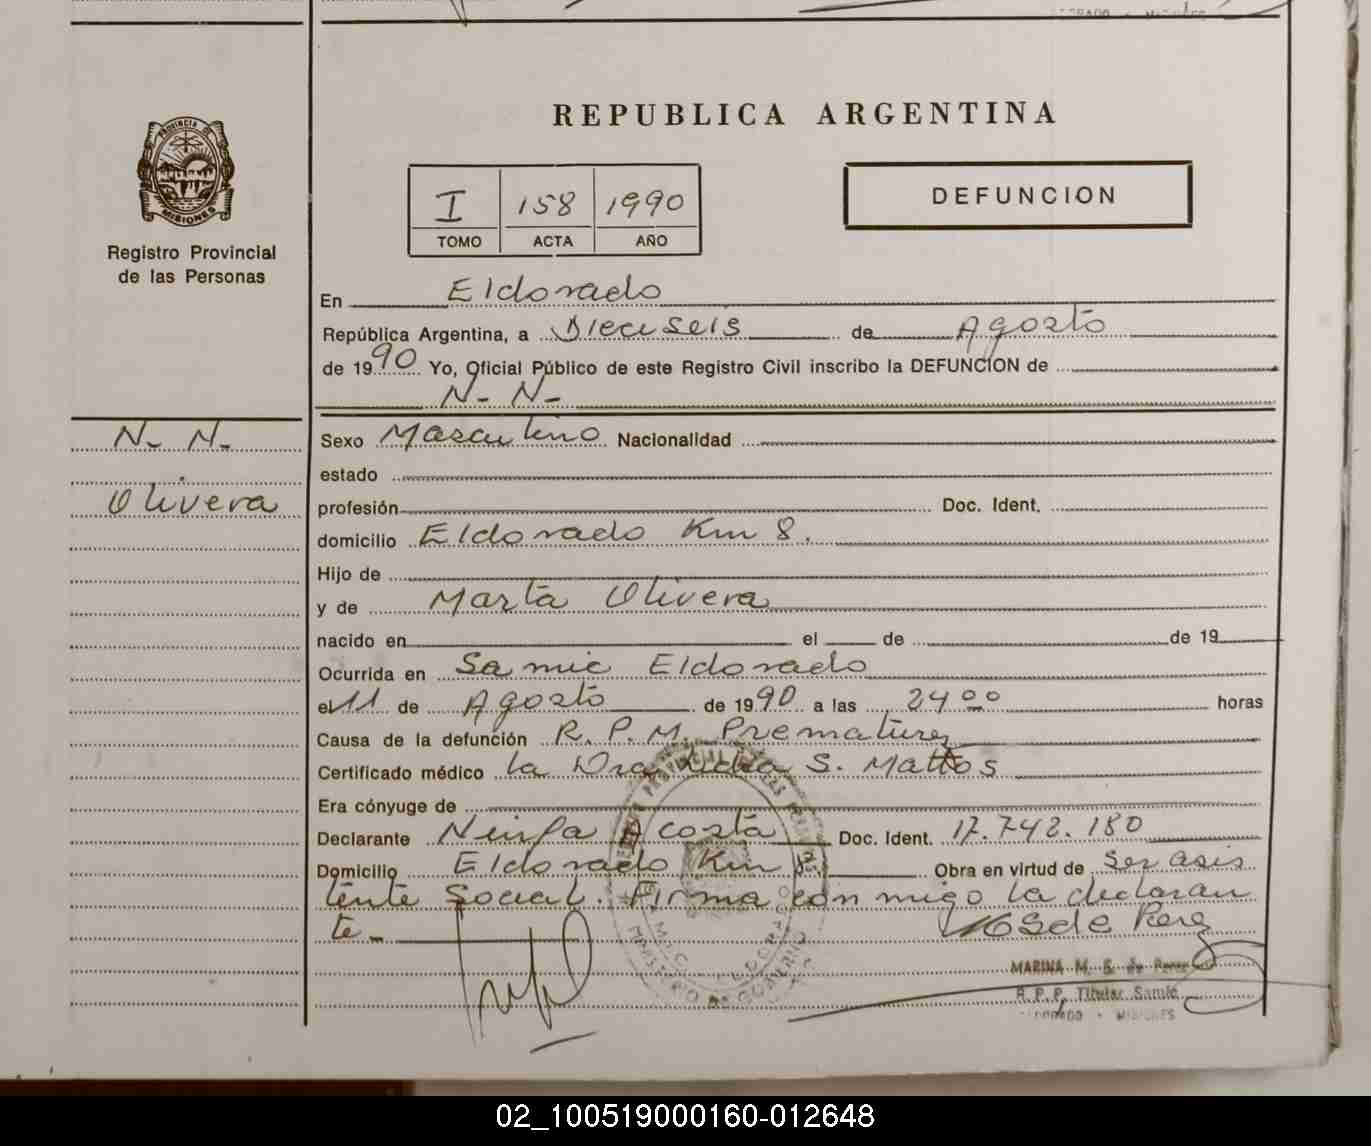 REPUBLICA ARGENTINA
PROVINCIA DE
MISIONES
Registro Provincial
de las Personas
I 158 1990
TOMO ACTA AÑO
DEFUNCION
En Eldorado
República Argentina, a Dieciseis de Agosto
de 1990 Yo, Oficial Público de este Registro Civil inscribo la DEFUNCION de
N- N-
N- N-
Olivera
Sexo Masculino Nacionalidad
estado
profesión Doc. Ident.
domicilio Eldorado Km 8.
Hijo de
y de Marta Olivera
nacido en el de de 19
Ocurrida en Samic Eldorado
el 11 de Agosto de 1990 a las 24 00 horas
Causa de la defunción R. P. M. Prematurez
Certificado médico la Dra S. Mattos
Era cónyuge de
Declarante Ninfa Acosta Doc. Ident. 17.742.180
Domicilio Eldorado Km Obra en virtud de Ser asis
tente Social. Firma conmigo la declaran
te -
MARINA M. S. de Perez
R. P. P. Titular Samic
MISIONES
MINISTERIO DE GOBIERNO
02_100519000160-012648